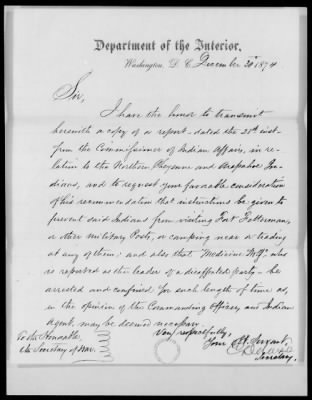 Department of the Interior,
Washington, D. C. December 30" 1874
Sir,
I have the honor to transmit
herewith a copy of a report - dated the 28th inst -
from the Commissioner of Indian Affairs, in re-
lation to the Northern Cheyenne and Arapahoe In-
dians, and to request your favorable consideration
of his recommendation that instructions be given to
prevent said Indians from visiting Fort Fetterman,
or other Military Posts, or camping near or trading
at any of them; and also that "Medicine Man" who
is reported as the leader of a disaffected party - be
arrested and confined for such length of time as,
in the opinion of the Commanding Officer and Indian
Agent, may be deemed necessary.
Very respectfully,
Your Obt. Servant,
To the Honorable
the Secretary of War.
Secretary.